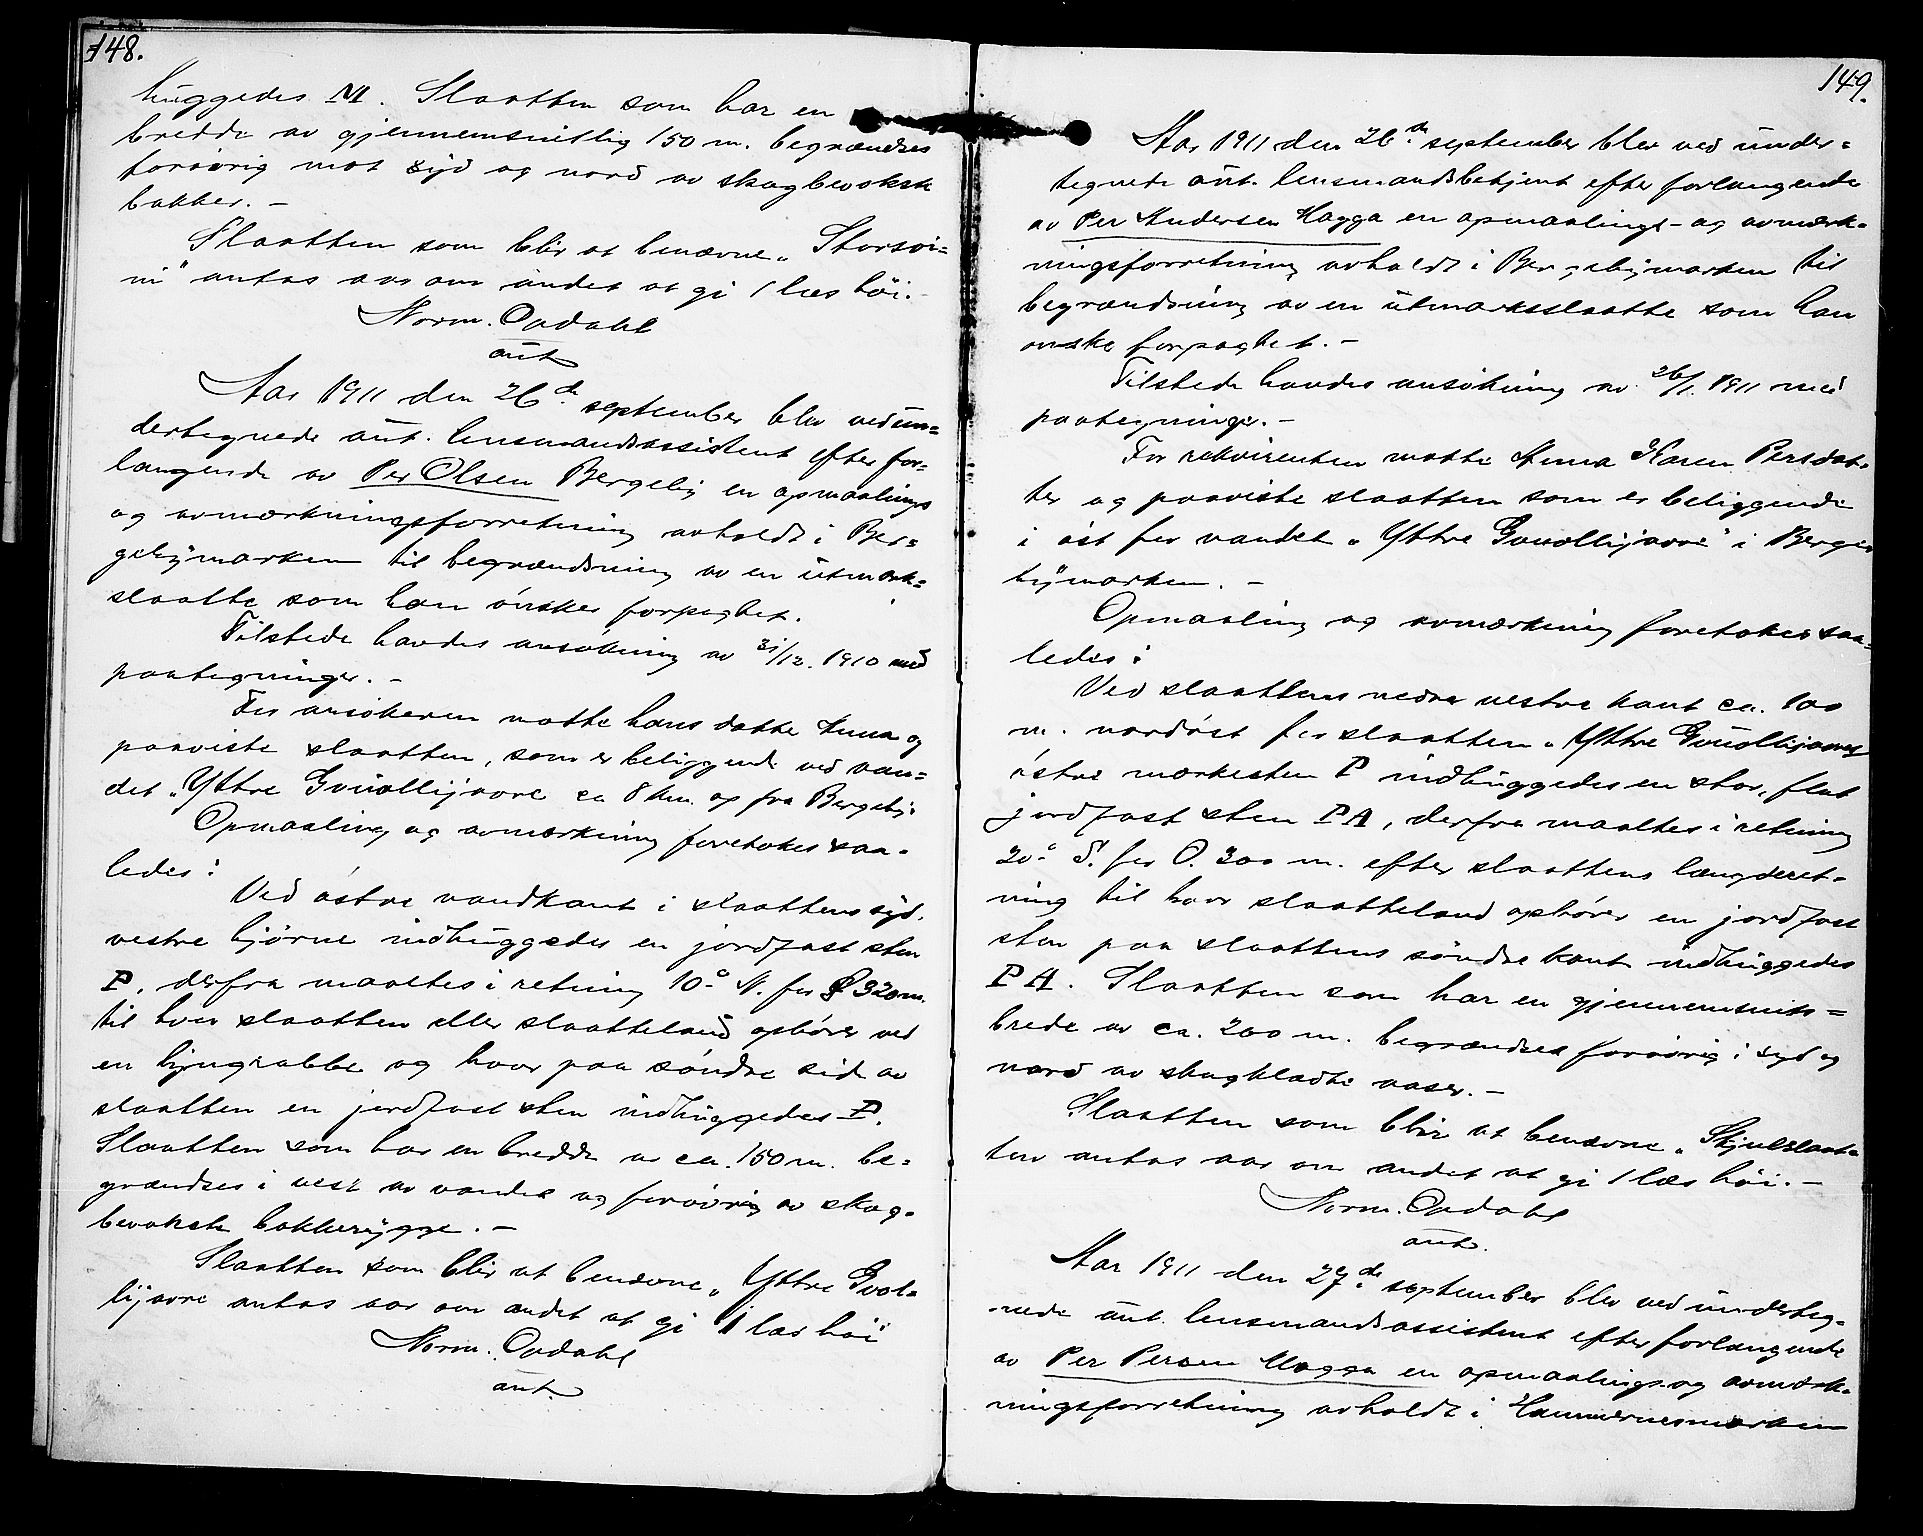 148.
huggedes M. Slaatten som har en
bredde av gjennemsnitlig 150 m. begrændses
forøvrig mot syd og nord av skogbevokste
bakker. –
Slaatten som blir at benævne „Storsvi-
ni" antas aar om andet at gi 1 læs høi. –
Norm. Opdahl
aut
Aar 1911 den 26de september blev ved un=
dertegnede aut. lensmandsassistent efter for=
langende av Per Olsen Bergeby en opmaalings
og avmærkningsforretning avholdt i Ber=
gebymarken til begrændsning av en utmark=
slaatte som han ønsker forpagtet.
Tilstede havdes ansøkning av 31/12. 1910 med
paategninger. –
For ansøkeren møtte hans datter Anna og
paaviste slaatten, som er beliggende ved van=
det „Yttre Gvuollijavre ca 8 km. op fra Bergeby.
Opmaaling og avmærkning foretokes saa-
ledes:
Ved østre vandkant i slaattens syd-
vestre hjørne indhuggedes en jordfast sten
P, derfra maaltes i retning 10° N. for Ø 320 m.
til hvor slaatten eller slaatteland ophører ved
en lyngrabbe og hvor paa søndre side av
slaatten en jordfast sten indhuggedes P.
Slaatten som har en bredde av ca. 150 m. be=
grændses i vest av vandet og forøvrig av skog-
bevokste bakkerygge. –
Slaatten som blir at benævne „Yttre Gvol-
lijavre antas aar om andet at gi 1 læs høi
Norm. Opdahl
aut.
149.
Aar 1911 den 26de september blev ved under=
tegnede aut. lensmandsbetjent efter forlangende
av Per Andersen Magga en opmaalings- og avmærk-
ningsforretning avholdt i Bergebymarken til
begrændsning av en utmarksslaatte som han
ønske forpagtet. –
Tilstede havdes ansøkning av 26/1. 1911 med
paategninger. –
For rekvirenten møtte Anna Karen Persdat-
ter og paaviste slaatten som er beliggende
i øst for vandet „Yttre Gvuollijavre" i Berge-
bymarken. –
Opmaaling og avmærkning foretokes saa=
ledes:
Ved slaattens nedre vestre kant ca. 100
m. nordøst for slaatten „Yttre Gvuollijavres
østre mærkesten P indhuggedes en stor, flat
jordfast sten PA, derfra maaltes i retning
20° S. for O. 300 m. efter slaattens længderet-
ning til hvor slaatteland ophører en jordfast
sten paa slaattens søndre kant indhuggedes
PA. Slaatten som har en gjennemsnits=
brede av ca. 200 m. begrændses forøvrig i syd og
nord av skogklædte aaser. –
Slaatten som blir at benævne „Skjulslaat=
ten antas aar om andet at gi 1 læs høi. –
Norm. Opdahl
aut.
Aar 1911 den 27de september blev ved underteg-
nede aut. lensmandsassistent efter forlangende
av Per Persen Magga en opmaalings og avmærk-
ningsforretning avholdt i Hammernesmarken